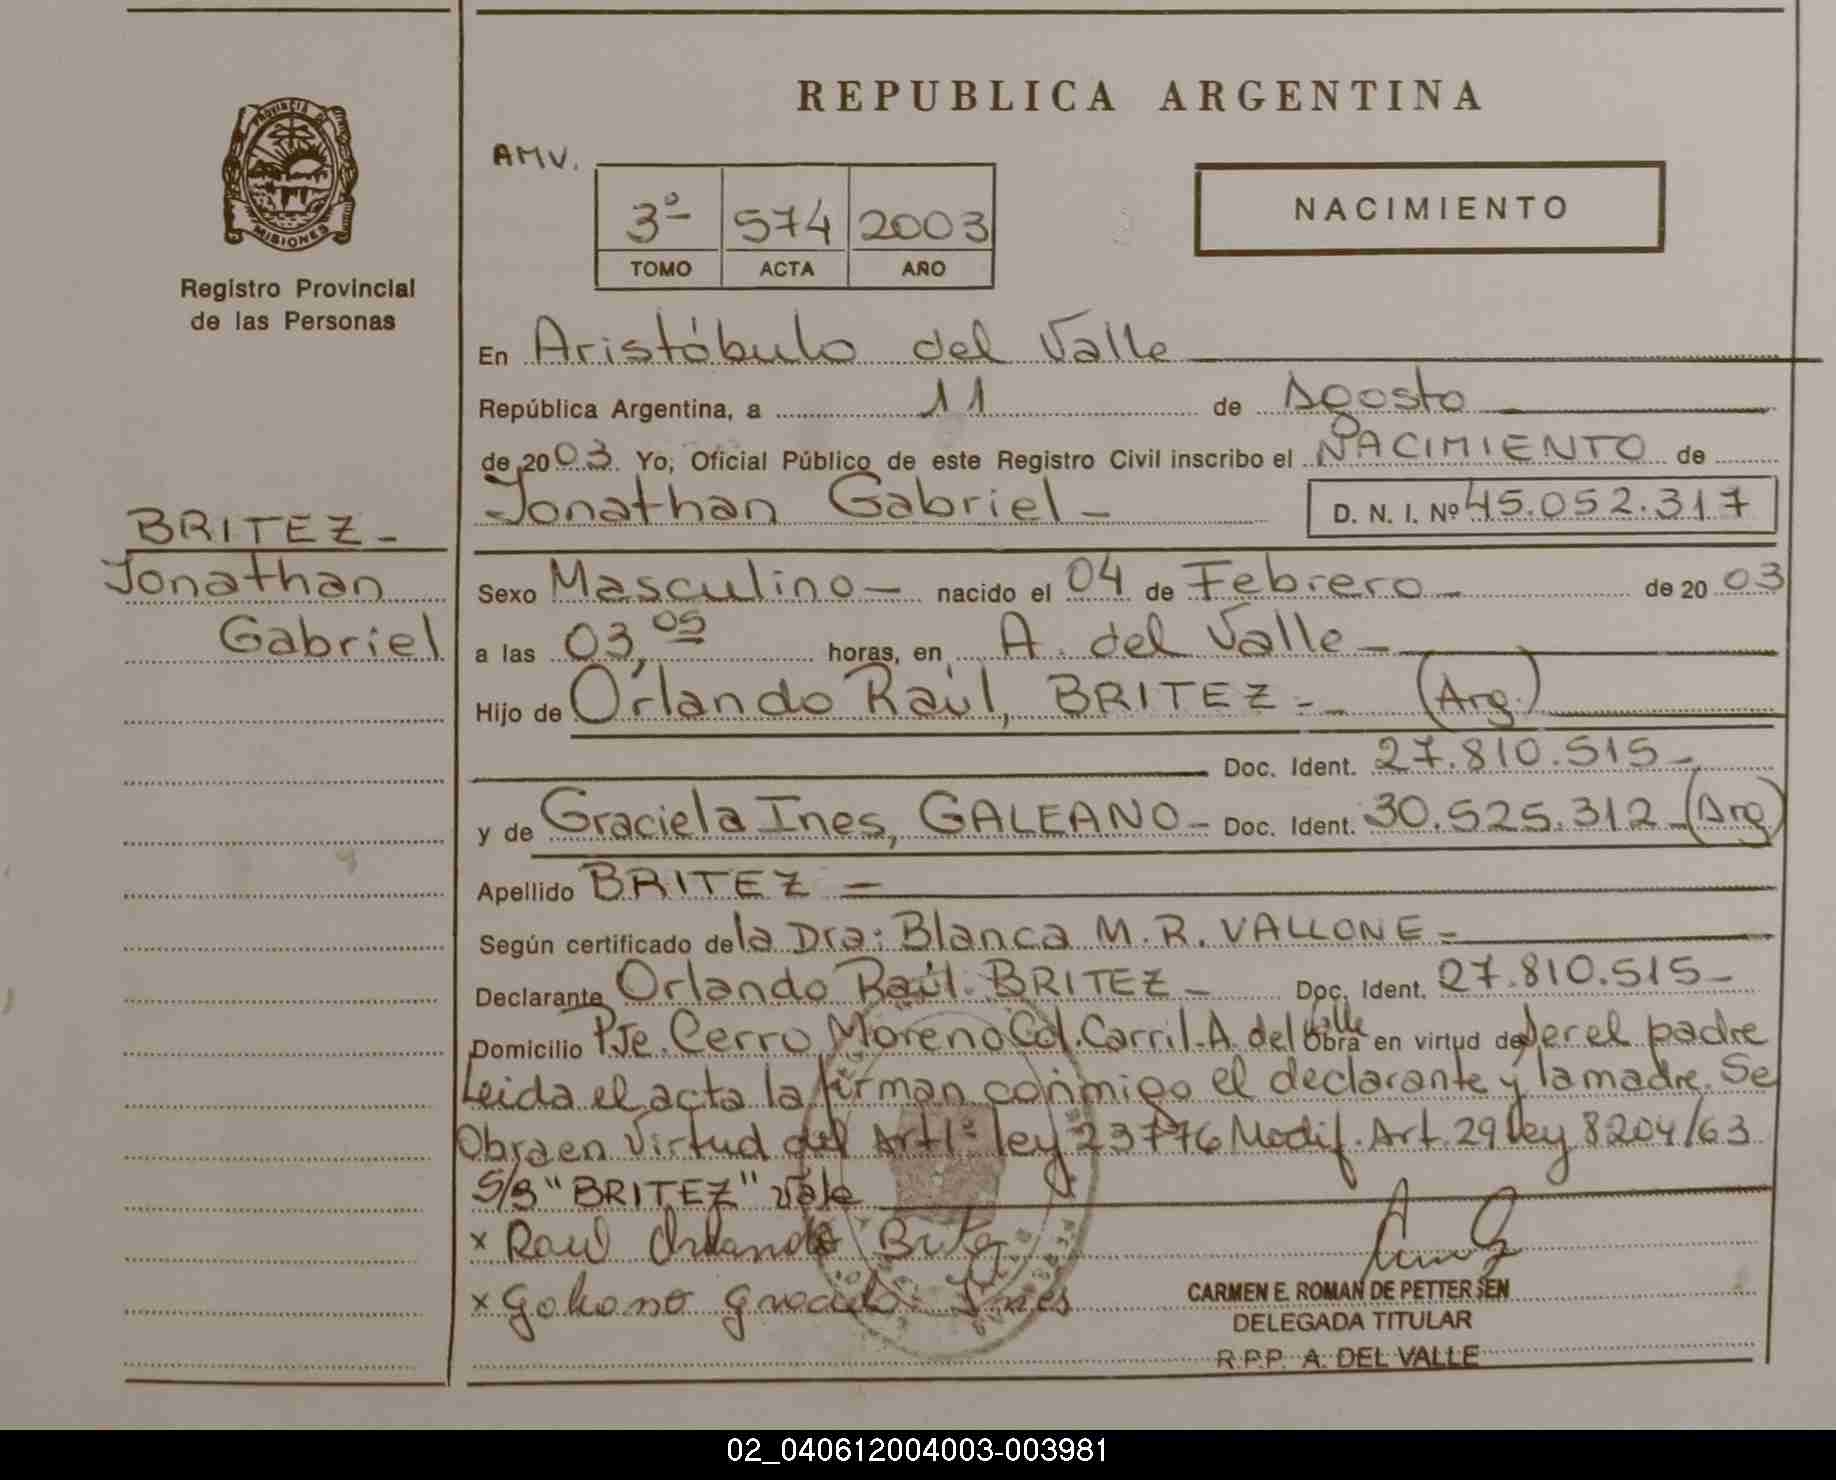 PROVINCIA DE
MISIONES
Registro Provincial
de las Personas
BRITEZ-
Jonathan
Gabriel
REPUBLICA ARGENTINA
AMV.
3º 574 2003
TOMO ACTA AÑO
NACIMIENTO
En Aristóbulo del Valle
República Argentina, a 11 de Agosto
de 2003. Yo, Oficial Público de este Registro Civil inscribo el NACIMIENTO de
Jonathan Gabriel - D. N. I. Nº 45.052.317
Sexo Masculino - nacido el 04 de Febrero - de 2003
a las 03,05 horas, en A. del Valle -
Hijo de Orlando Raúl, BRITEZ - (Arg.)
Doc. Ident. 27.810.515-
y de Graciela Ines, GALEANO - Doc. Ident. 30.525.312-(Arg)
Apellido BRITEZ -
Según certificado de la Dra: Blanca M. R. VALLONE -
Declarante Orlando Raúl BRITEZ - Doc. Ident. 27.810.515-
Domicilio Pje. Cerro Moreno Cd. Carril. A. del Valle Obra en virtud de Ser el padre
Leida el acta la firman conmigo el declarante y la madre. Se
Obra en Virtud del Art 1º ley 23776 Modif. Art. 29 ley 8204/63
S/B "BRITEZ" Vale
x Raul Orlando Britez
x Galeano Graciela Ines
CARMEN E. ROMAN DE PETTERSEN
DELEGADA TITULAR
R.P.P. A. DEL VALLE
02_040612004003-003981